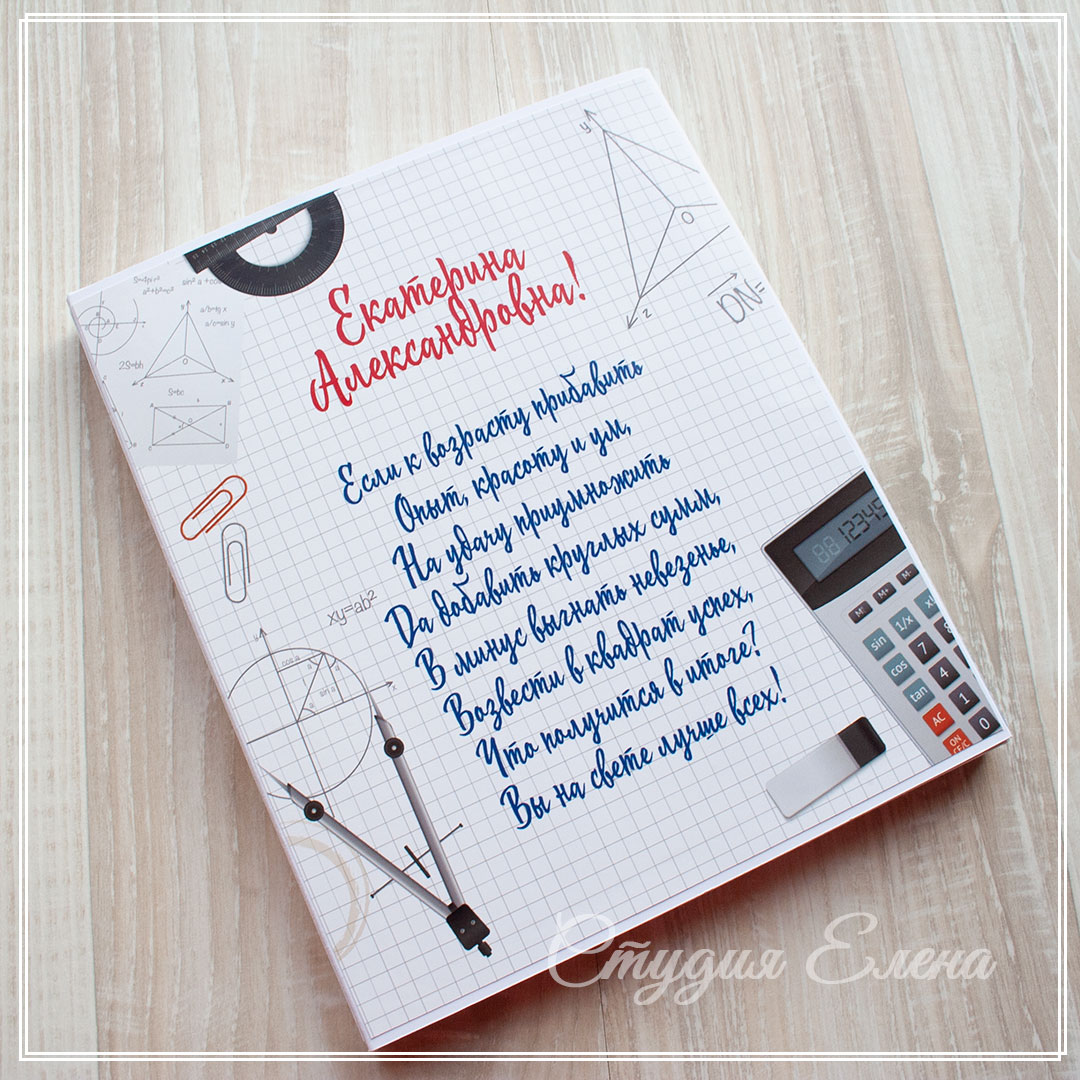 Екатерина
Александровна!
Если к возрасту прибавить
Опыт, красоту и ум,
На удачу приумножить
Да добавить круглых сумм,
В минус выгнать невезенье,
Возвести в квадрат успех,
Что получится в итоге?
Вы на свете лучше всех!
y
O
z
DN=
a²+b²=c²
a/b=tg x
a/c=sin y
2S=bh
S=bc
xy=ab²
cos a
sin a
x
12345
M+
M-
sin
1/x
cos
7
tan
4
1
AC
0
ON
CE/C
Студия Елена